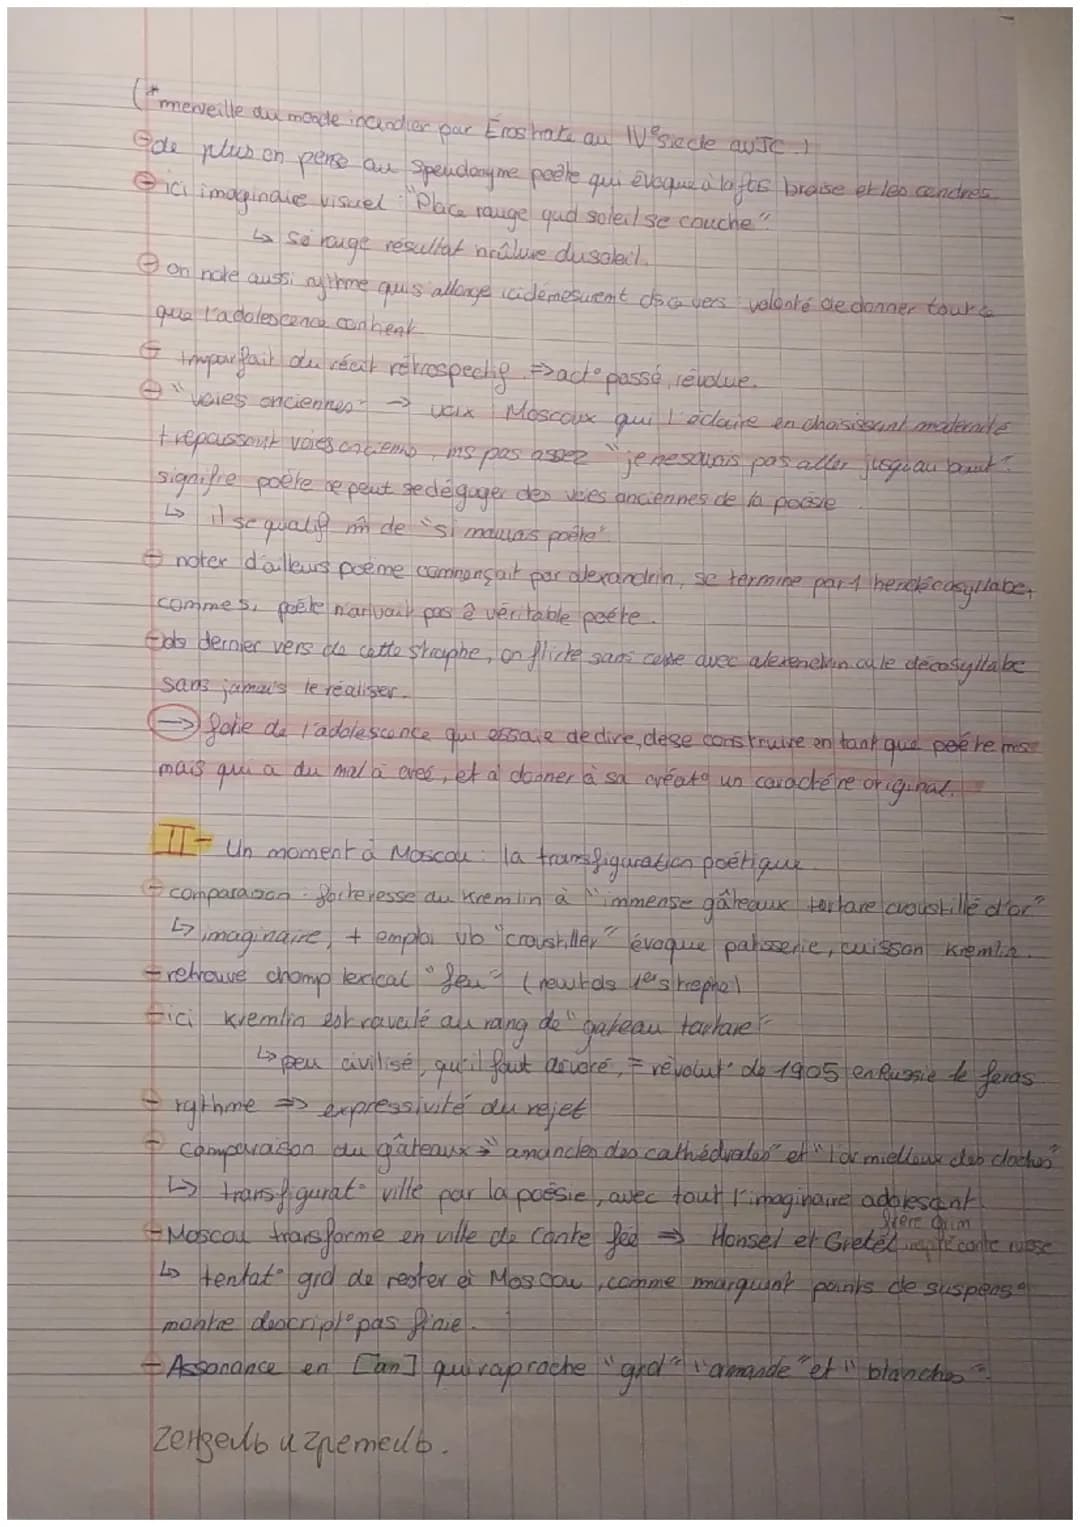 (*merveille du monde incendier par Érostrate au IVe siecle av JC.)
de plus on pense au speudonyme poète qui évoque à la fois braise et les cendres
ici imaginaire visuel : "Place rouge qud soleil se couche".
↳ so rouge résultat brûlure du soleil.
on note aussi rythme quis allonge icidémesurent ds ce vers volonté de donner tout ce
que l'adolescence contient
imparfait du récit rétrospectif => act° passé, révolue.
"voies anciennes" → voix Moscoux qui l'éclaire en choisissant modernité
trepassant voies anciens, ms pas assez "je ne savais pas aller jusqu'au bout".
signifie poète ne peut se dégager des voies anciennes de la poésie
↳ il se qualif m̂ de "si mauvais poète"
noter d'ailleurs poème commençait par alexandrin, se termine par 1 hendécasyllabe,
comme si poète n'arrivait pas ê véritable poète.
ds dernier vers de cette strophe, on flirte sans cesse avec alexendrin ou le décasyllabe
sans jamais le réaliser.
→ folie de l'adolescence qui essaie de dire, de se construire en tant que poète ms
mais qui a du mal à créé, et à donner à sa créat° un caractère original.
II- Un moment à Moscou : la transfiguration poétique
- comparaison : forteresse du Kremlin à "immense gâteaux tartare croustillé d'or"
↳ imaginaire, + emploi vb "croustiller" évoque patisserie, cuisson Kremlin.
- retrouve champ lexical "feu" (revu ds 1er strophe)
- ici Kremlin est ravalé au rang de "gateau tartare"
↳ peu civilisé, qu'il faut dévoré, = révolut° de 1905 en Russie le feras
- rythme => expressivité du rejet
- comparaison du gâteaux → "amandes des cathédrales" et "l'or mielleux des cloches"
↳ transfigurat° ville par la poésie, avec tout l'imaginaire adolescent
frère Grim
- Moscou transforme en ville de conte feé => Honsel et Gretel conte russe
↳ tentat° grd de rester à Moscou, comme marquant points de suspens°
montre descript° pas finie.
- Assonance en [an] qui raproche "grd" "amande" et "blanches".
Гензель и гретель.